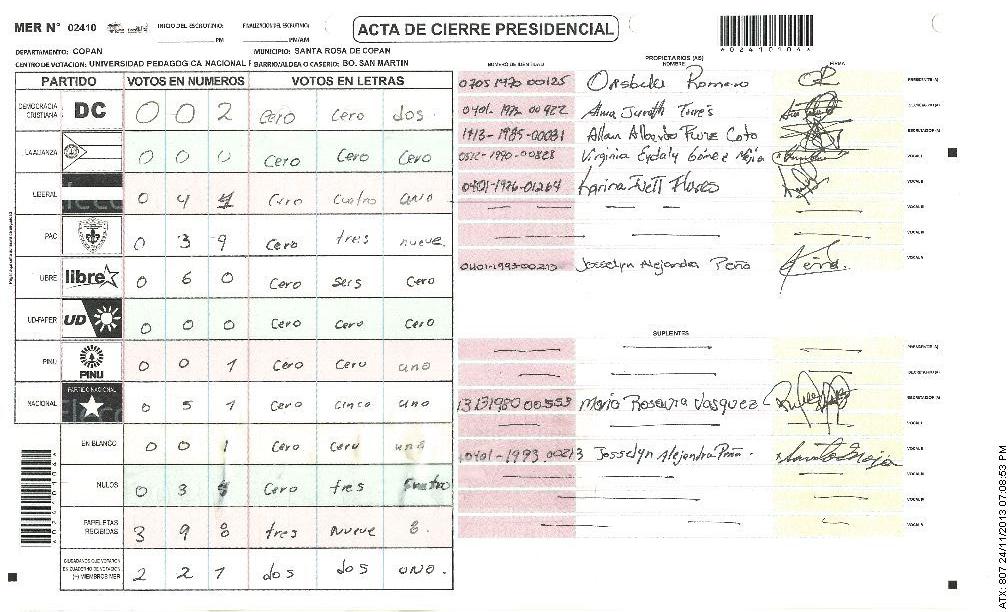 MER N° 02410 INICIO DEL ESCRUTINIO: PM FINALIZACION DEL ESCRUTINIO: PM/AM
ACTA DE CIERRE PRESIDENCIAL
DEPARTAMENTO: COPAN MUNICIPIO: SANTA ROSA DE COPAN
CENTRO DE VOTACION: UNIVERSIDAD PEDAGOGICA NACIONAL F BARRIO/ALDEA O CASERIO: BO. SAN MARTIN
PARTIDO VOTOS EN NUMEROS VOTOS EN LETRAS
DEMOCRACIA CRISTIANA DC 0 0 2 Cero Cero dos.
LA ALIANZA 0 0 0 Cero Cero Cero
LIBERAL 0 4 1 Cero Cuatro uno
PAC 0 3 9 Cero tres nueve
LIBRE libre 0 6 0 Cero Seis Cero
UD-FAPER UD 0 0 0 Cero Cero Cero
PINU PINU 0 0 1 Cero Cero uno
NACIONAL PARTIDO NACIONAL 0 5 1 Cero Cinco uno
EN BLANCO 0 0 1 Cero Cero una
NULOS 0 3 Cero tres
PAPELETAS RECIBIDAS 3 9 8 tres nueve 8.
CIUDADANOS QUE VOTARON EN CUADERNO DE VOTACION (+) MIEMBROS MER 2 2 1 dos dos uno.
PROPIETARIOS (AS)
NUMERO DE IDENTIDAD NOMBRE FIRMA
0705 1970 00125 Romero PRESIDENTE (A)
0401-1972 00922 Alma Torres
1413-1985-00031 Allan Alberto Coto ESCRUTADOR (A)
-1990-00828 Virginia Eydaly Gómez Mejia VOCAL I
0401-1976-01264 Karina Ivett Flores VOCAL II
VOCAL III
VOCAL IV
0401-1993-00213 Josselyn Alejandra Peña VOCAL V
SUPLENTES
PRESIDENTE (A)
SECRETARIO (A)
1313 1980 00553 Maria Rosaura Vasquez ESCRUTADOR (A)
VOCAL I
0401-1993 00213 Josselyn Alejandra Peña. VOCAL II
VOCAL III
VOCAL IV
VOCAL V
ATX: 807 24/11/2013 07:08:53 PM